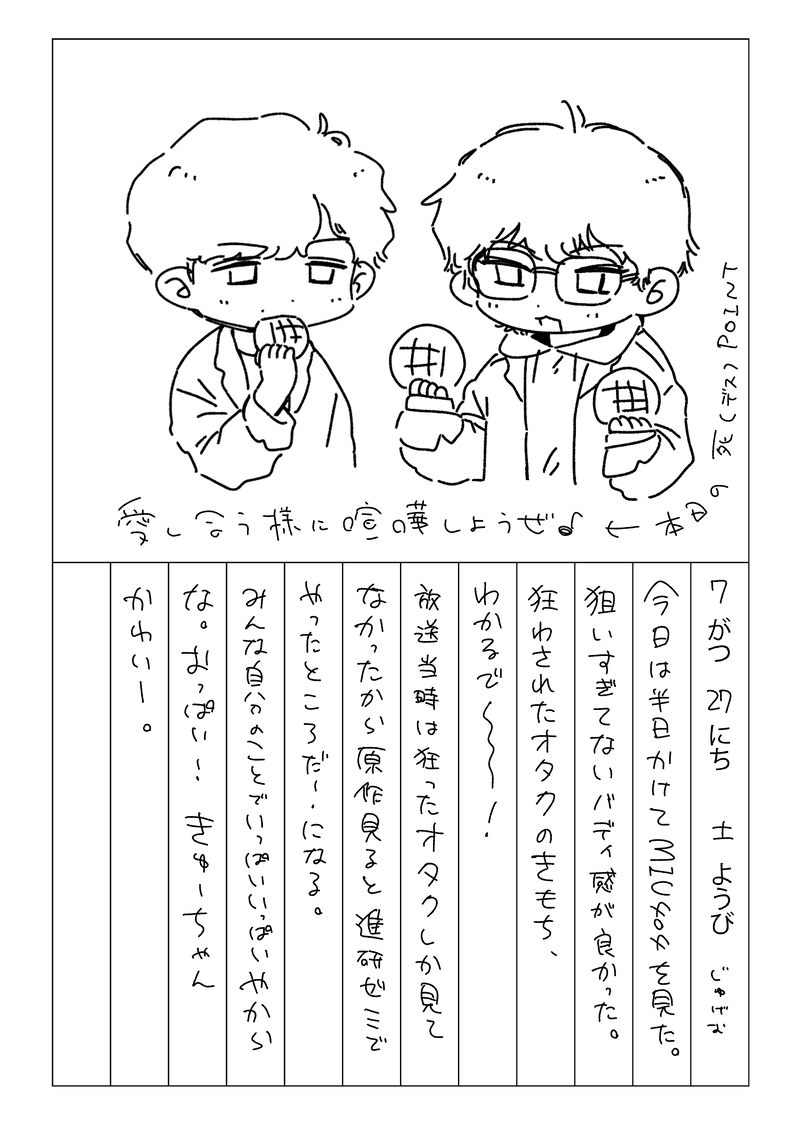 本日の死(デス)POINT
→愛し合う様に喧嘩しようぜ♪
7がつ 27にち 土ようび じゅげむ
今日は半日かけてMIU404を見た。
狙いすぎてないバディ感が良かった。
狂わされたオタクのきもち、
わかるで〜〜〜!
放送当時は狂ったオタクしか見て
なかったから原作見ると進研ゼミで
やったところだ!になる。
みんな自分のことでいっぱいいっぱいやから
な。おっぱい! きゅーちゃん
かわいー。